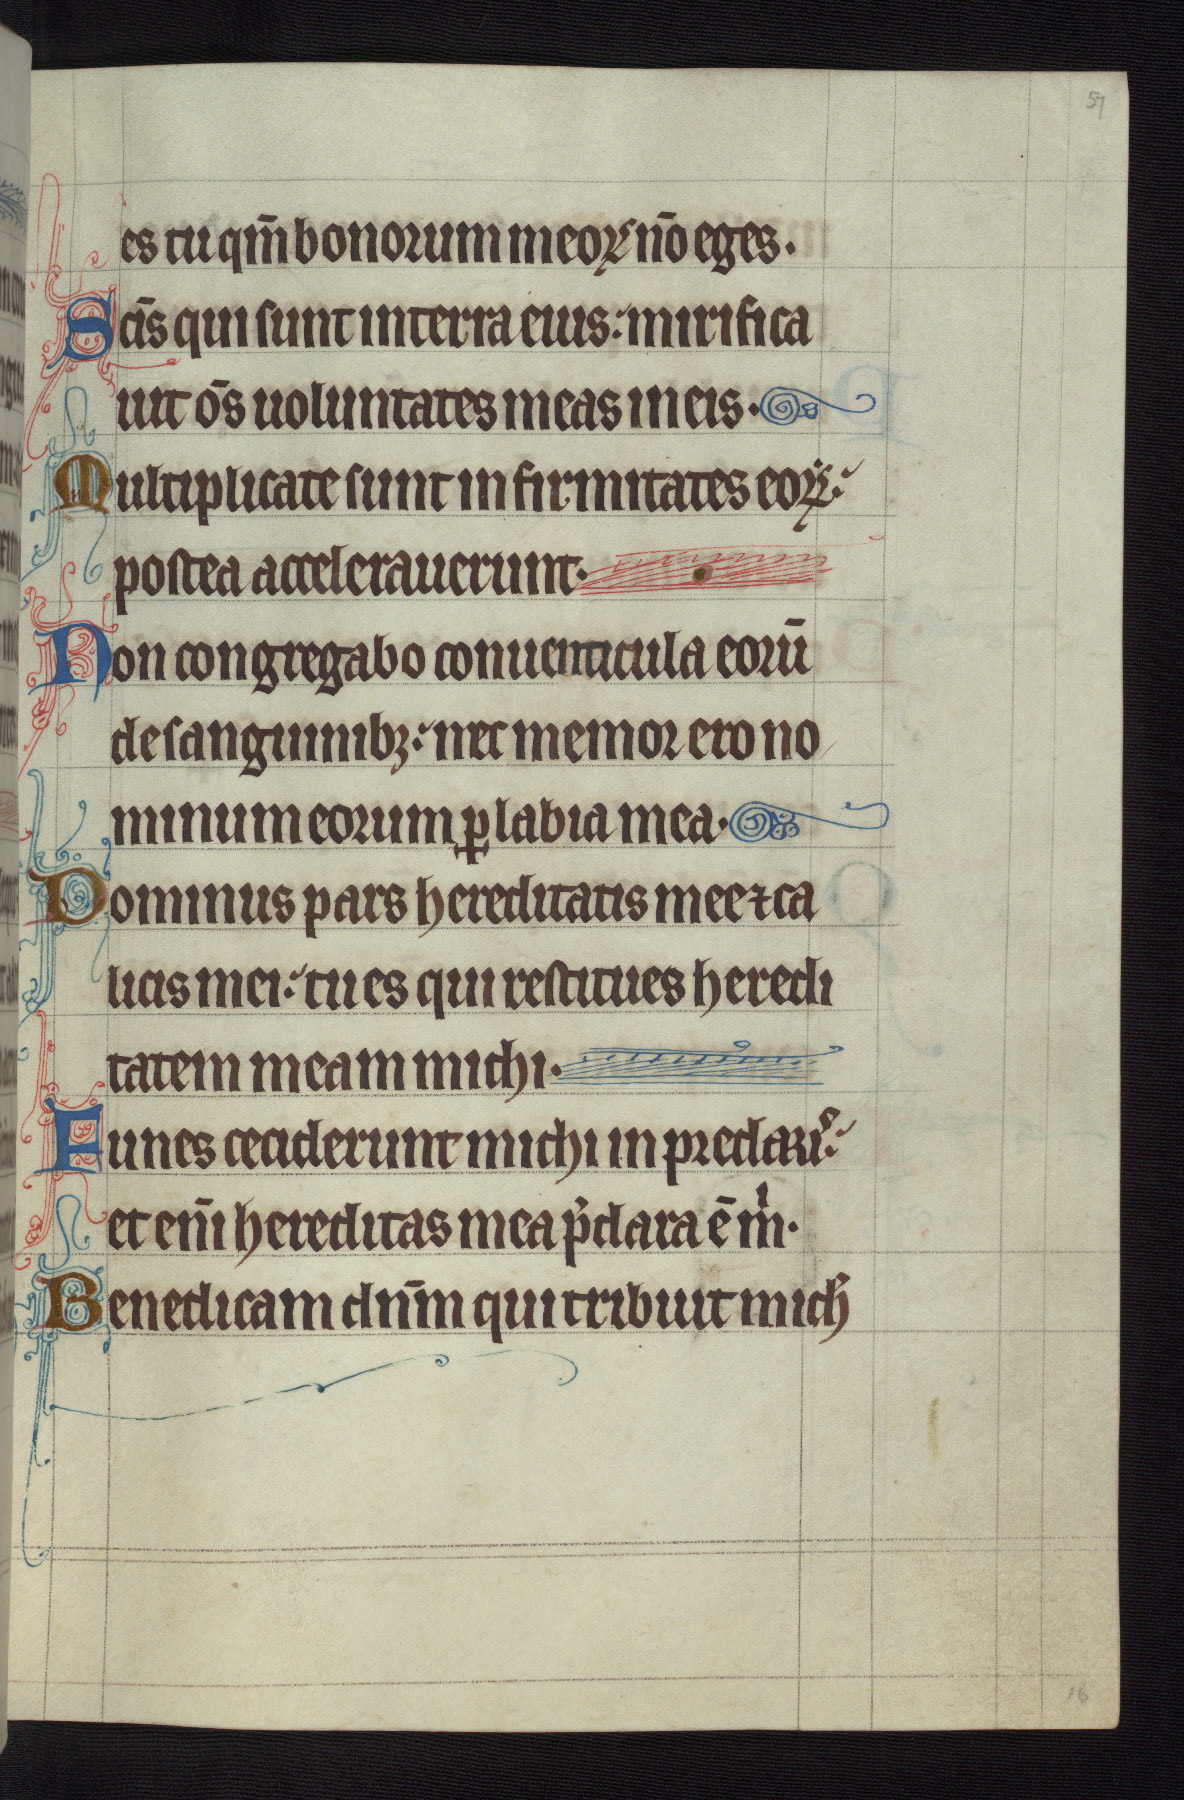 57
es tu qm̄ bonorum meoꝝ nō eges.
Scīs qui sunt in terra eius: mirifica
uit oēs uoluntates meas in eis.
Multiplicate sunt infirmitates eoꝝ:
postea accelerauerunt.
Non congregabo conuenticula eorū
de sanguinibꝫ: nec memor ero no
minum eorum ꝑ labia mea.
Dominus pars hereditatis mee ⁊ ca
licis mei: tu es qui restitues heredi
tatem meam michi.
Funes ceciderunt michi in preclarꝭ:
et em̄ hereditas mea p̄clara ē mͥ.
Benedicam dn̄m qui tribuit mich̄
16